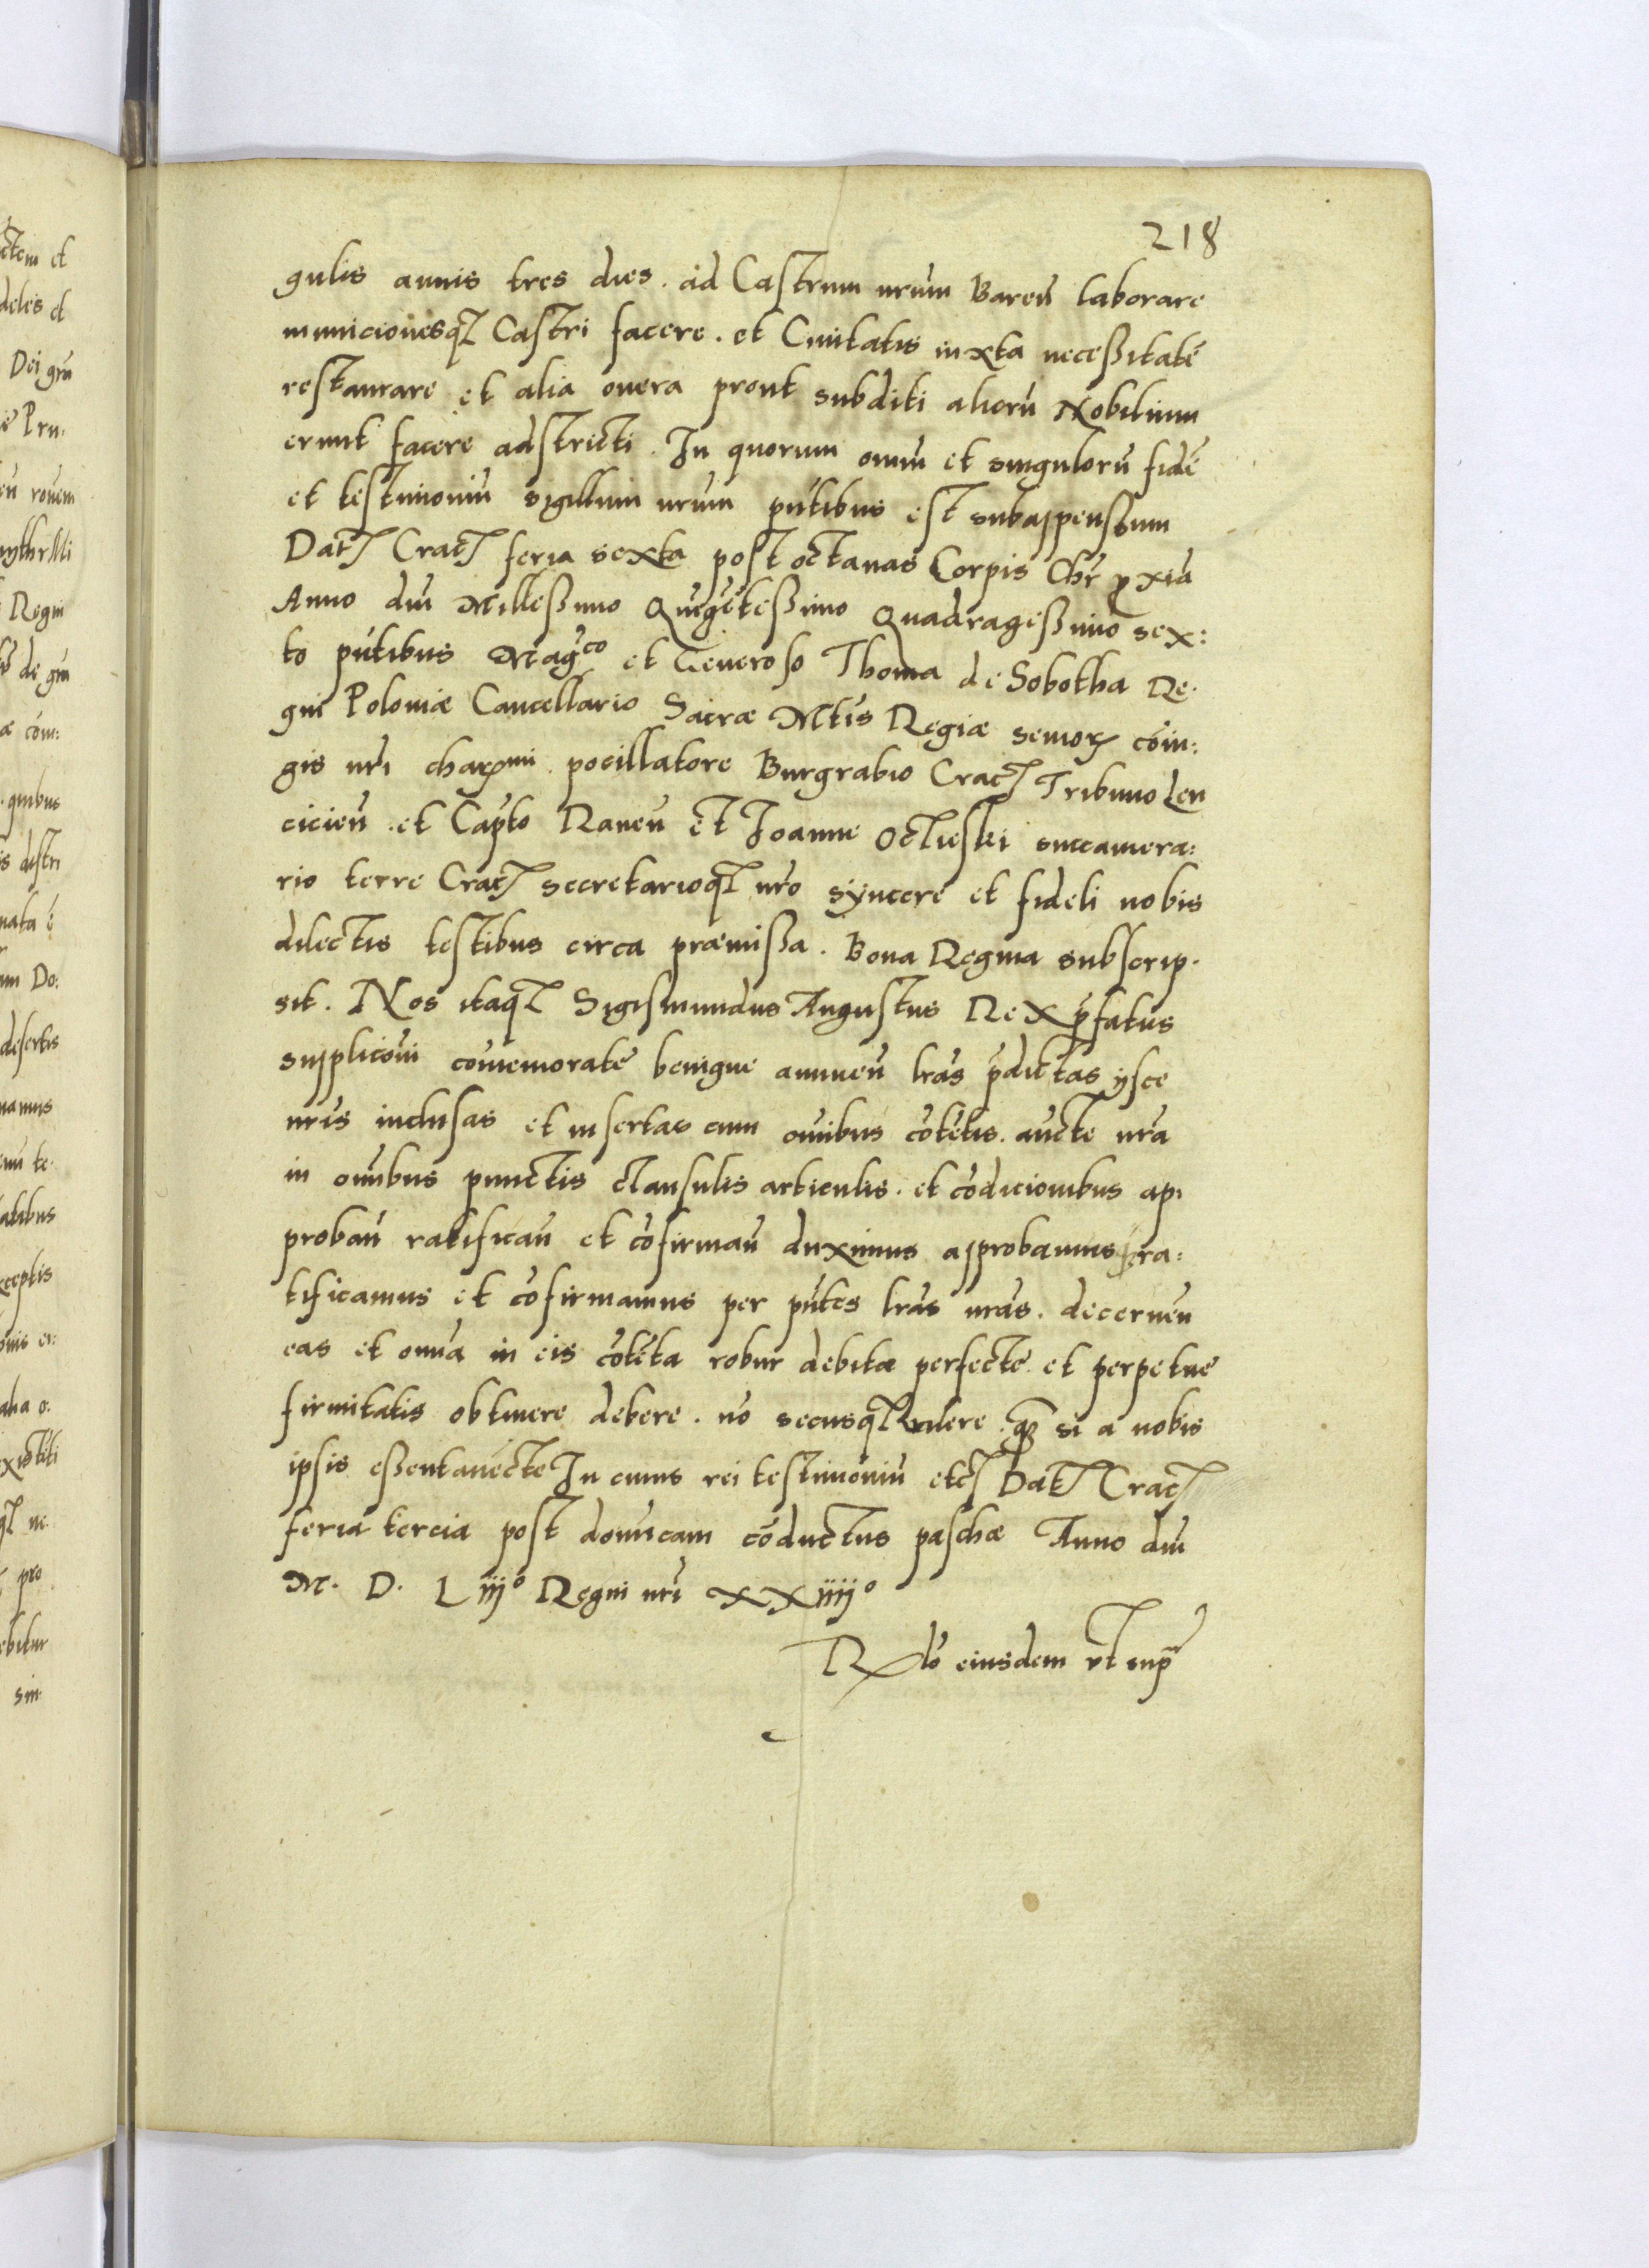 218
gulis annis tres dies. ad Castrum nr̄um Bareñ laborare
municionesq̃ Castri facere. et Ciuitatis iuxta necessitatē
restaurare et alia onera prout subditi aliorū Nobilium
erunt facere adstricti. In quorum om̄iū et singulorū fidē
et testimoniū sigillum nr̄um pn̄tibus est subappensum
Dat̃ Crac̃ feria sexta post octauas Corp̄is Chr̄i proxīa
Anno dn̄i Millessimo Quīgētessimo Quadragessimo sex:
to pn̄tibus Mag̃co et Generoso Thoma de Sobotha Re.
gni Poloniæ Cancellario Sacræ Mt̄is Regiæ senioꝝ cōiu:
gis nr̄i chaꝝmi. pocillatore Burgrabio Crac̃ Tribuno Len
cicieñ. et Cap̄to Raueñ et Joanne Oclieski succamera:
rio terre Crac̃ secretarioq̃ nr̄o syncere et fideli nobis
dilectis testibus circa præmissa. Bona Regina subscrip.
sit. Nos itaq̃ Sigismundus Augustus Rex p̄fatus
supplicōni cōmemorate benigne annueñ lr̄as p̄dictas ijsce
nr̄is inclusas et insertas cum om̄ibus cōtētis. aucte nr̄a
in om̄ibus punctis clausulis articulis. et cōdicionibus ap:
probañ ratificañ et cōfirmañ duximus approbamus ra:
tificamus et cōfirmamus per pn̄tes lr̄as nr̄as. decerneñ
eas et omīa in eis cōtēta robur debitæ perfecte et perpetue
firmitatis obtinere debere. nō secusq̃ ꝙ si a nobis
ipsis essent auecte In cuius rei testimoniū etc̃ Dat̃ Crac̃
feria tercia post domīcam cōductus paschæ Anno dn̄i
M. D. Liiijº Regni nr̄i XXiiiijº
Rlō eiusdem vt sup̃